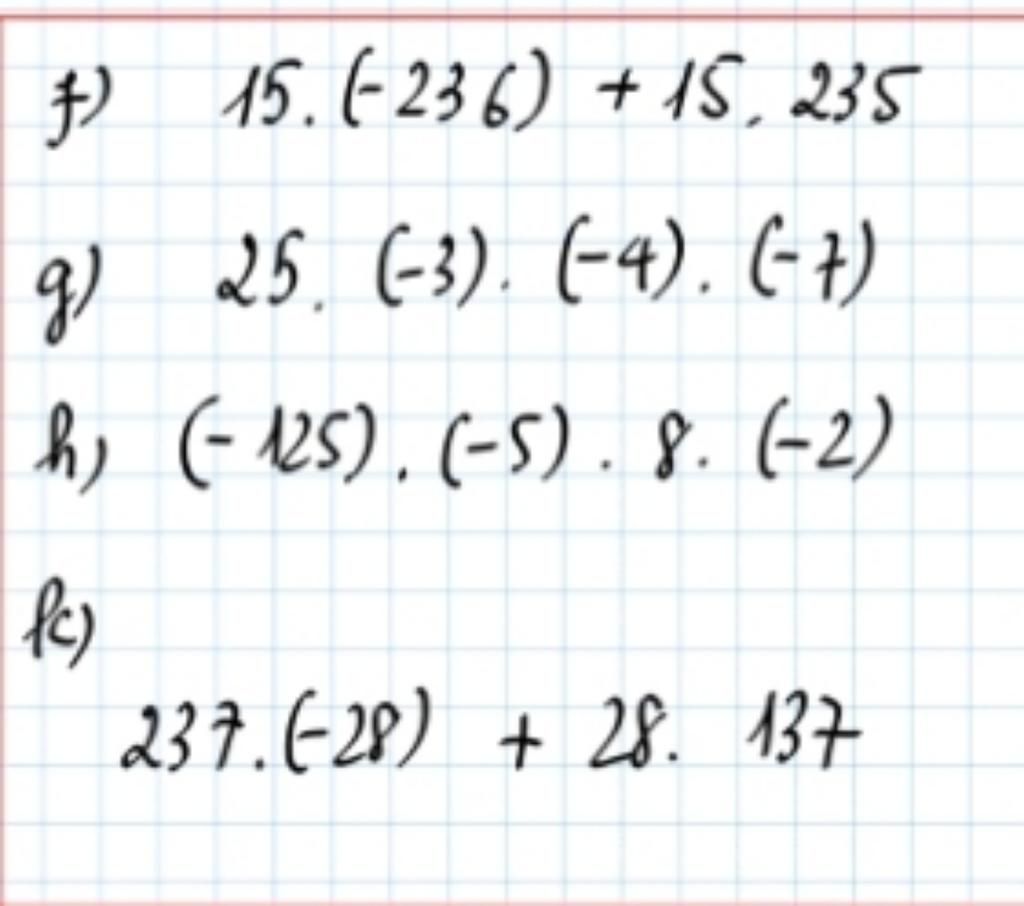 f) 15. (-236) + 15. 235
g) 25. (-3). (-4). (-7)
h) (-125). (-5). 8. (-2)
k)
237. (-28) + 28. 137